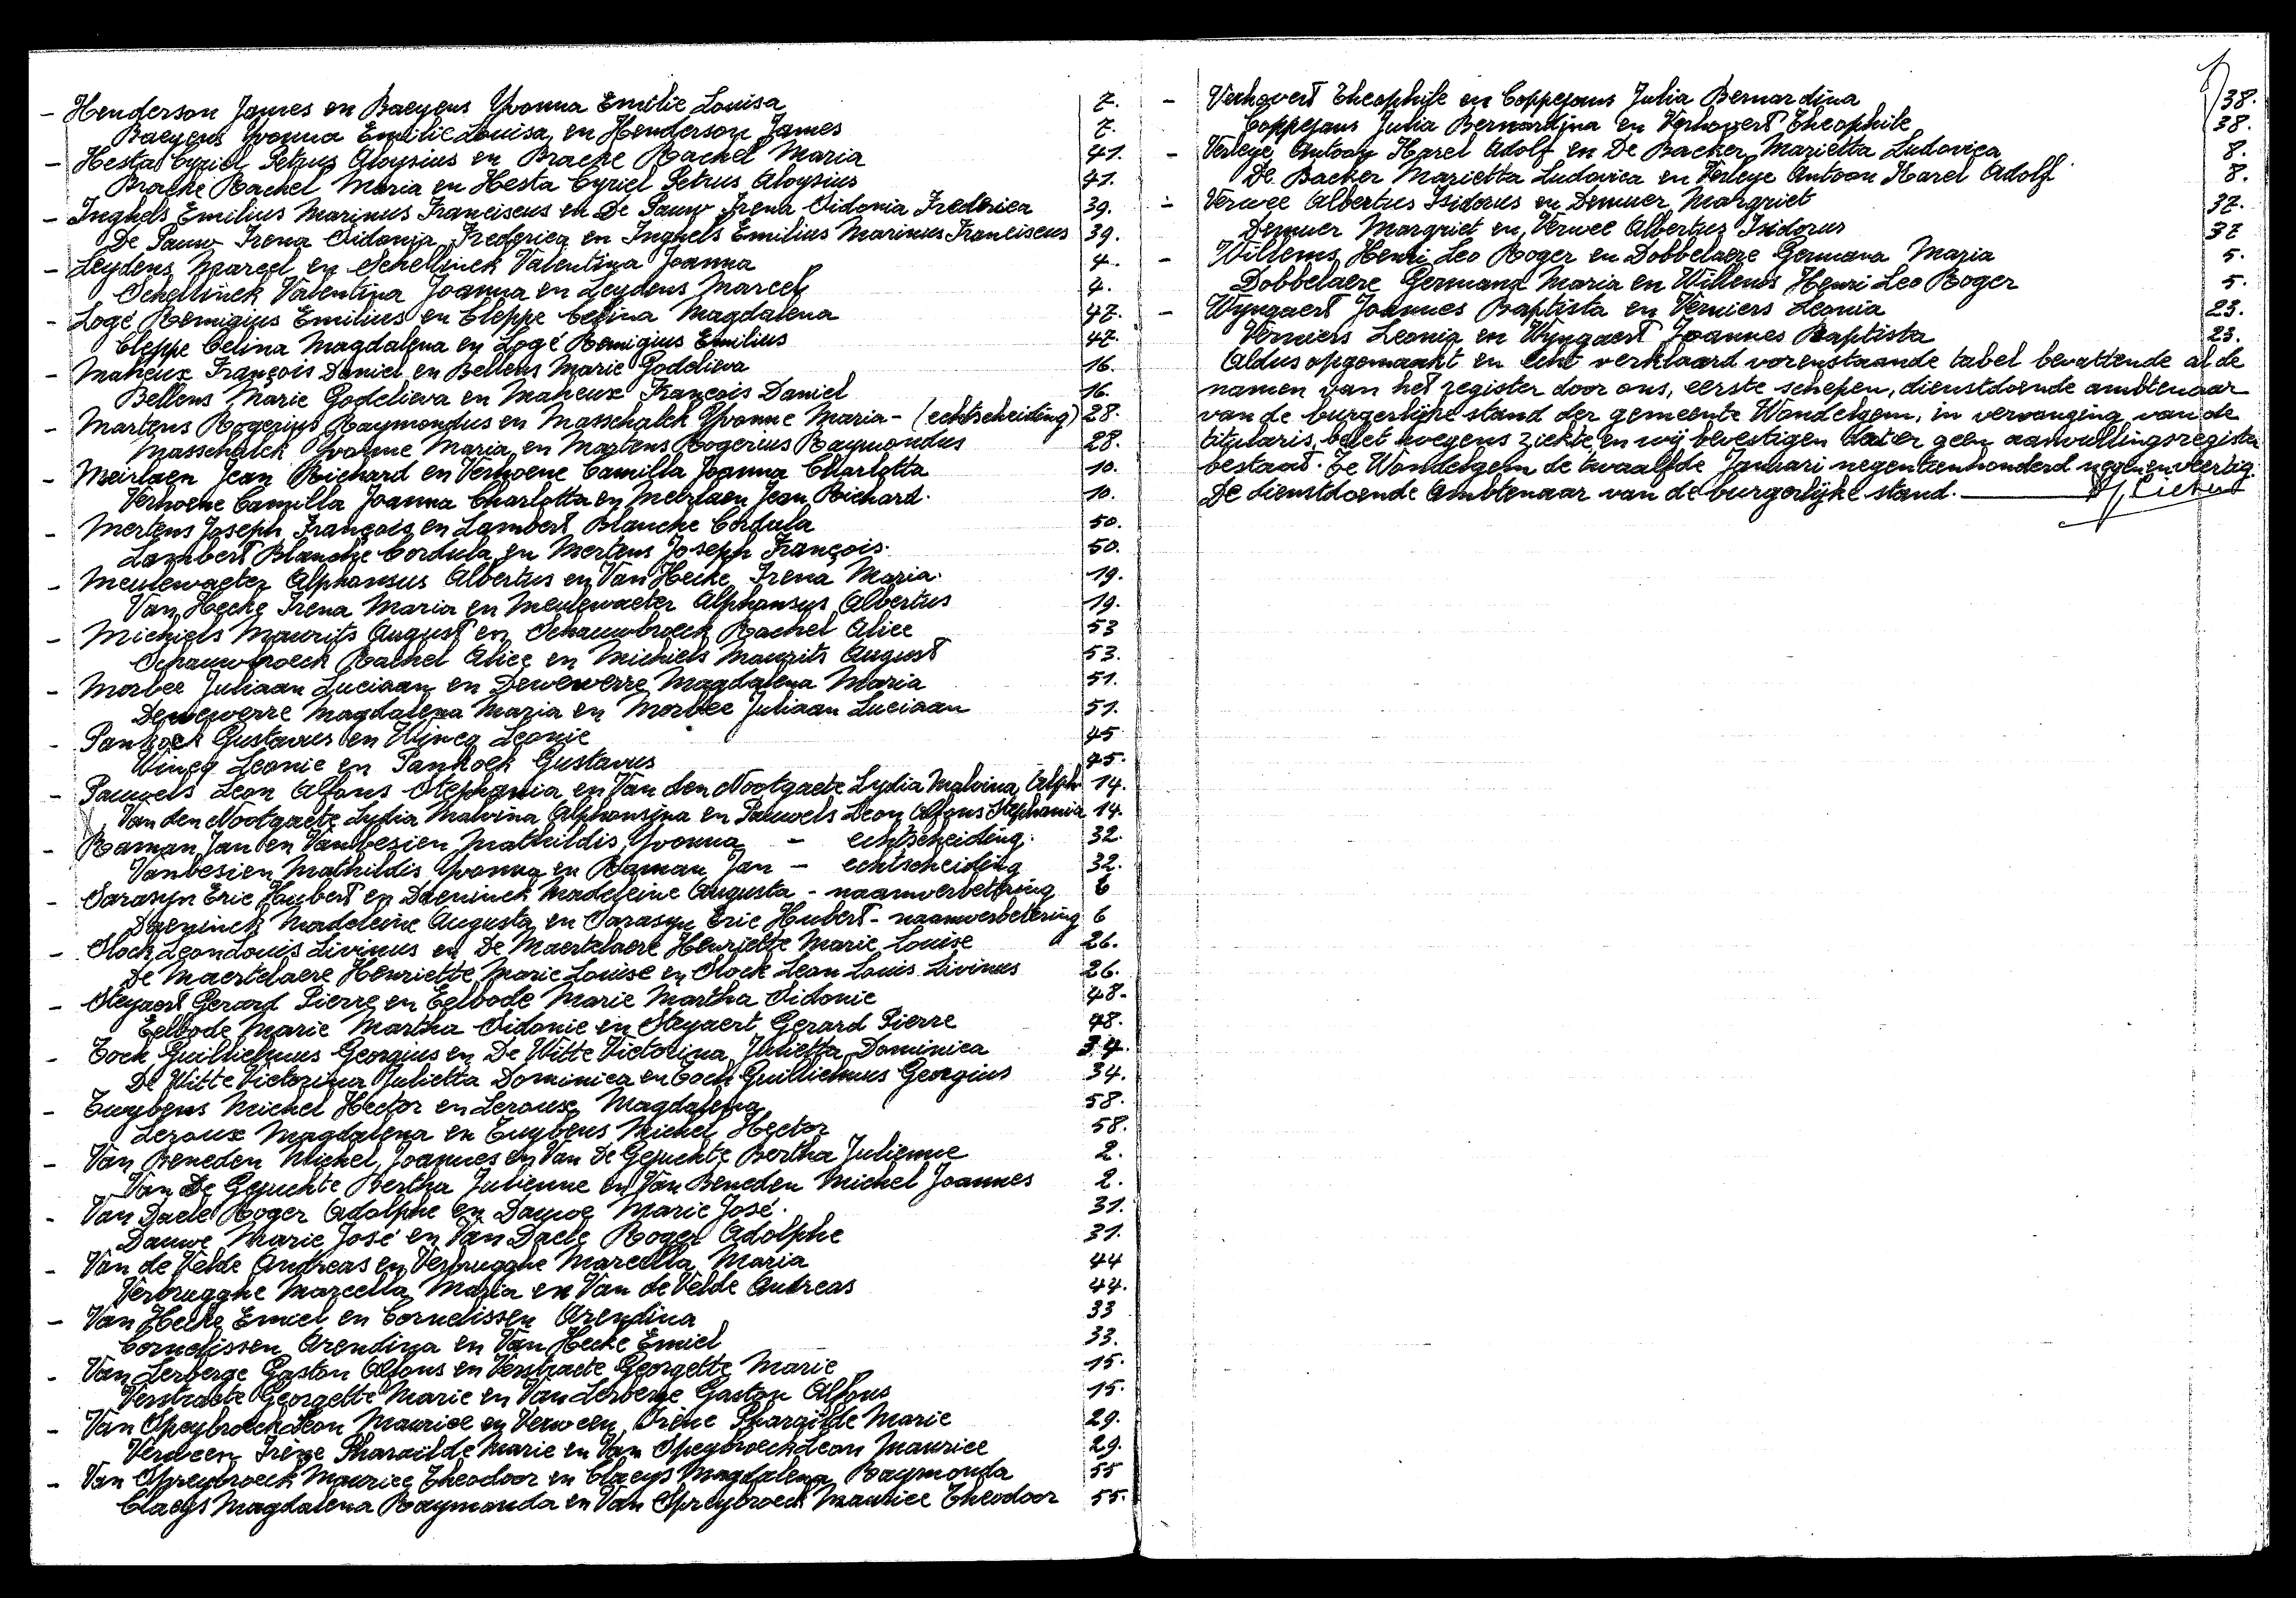 - Henderson James en Baeyens Yvonna Emilie Louisa 7.
Baeyens Yvonna Emilie Louisa en Henderson James 7.
- Hesta Cyriel Petrus Aloysius en Bracke Rachel Maria 41.
Bracke Rachel Maria en Hesta Cyriel Petrus Aloysius 41.
- Inghels Emilius Marinus Franciscus en De Pauw Irena Sidonia Frederica 39.
De Pauw Irena Sidonia Frederica en Inghels Emilius Marinus Franciscus 39.
- Leydens Marcel en Schellinck Valentina Joanna 4.
Schellinck Valentina Joanna en Leydens Marcel 4.
- Logé Remigius Emilius en Cleppe Celina Magdalena 47.
Cleppe Celina Magdalena en Logé Remigius Emilius 47.
- Maheux François Daniel en Bellens Marie Godelieva 16.
Bellens Marie Godelieva en Maheux François Daniel 16.
- Martens Rogerius Raymondus en Masschalck Yvonne Maria - (echtscheiding) 28.
Masschalck Yvonne Maria en Martens Rogerius Raymondus 28.
- Meirlaen Jean Richard en Verhoene Camilla Joanna Charlotta 10.
Verhoene Camilla Joanna Charlotta en Meirlaen Jean Richard. 10.
- Mertens Joseph François en Lambert Blanche Cordula 50.
Lambert Blanche Cordula en Mertens Joseph François. 50.
- Meulewaeter Alphonsus Albertus en Van Hecke Irena Maria. 19.
Van Hecke Irena Maria en Meulewaeter Alphonsus Albertus 19.
- Michiels Maurits August en Schauwbroeck Rachel Alice 53
Schauwbroeck Rachel Alice en Michiels Maurits August 53.
- Morbee Juliaan Luciaan en Dewewerre Magdalena Maria 51.
Dewewerre Magdalena Maria en Morbee Juliaan Luciaan 51.
- Panhoek Gustavus en Wincq Leonie 45
Wincq Leonie en Panhoek Gustavus 45.
- Pauwels Leon Alfons Stephania en Van den Nootgaete Lydia Malvina Alph 14.
Van den Nootgaete Lydia Malvina Alphonsina en Pauwels Leon Alfons Stephania 14.
- Raman Jan en Vanbesien Mathildis Yvonna - echtscheiding. 32.
Vanbesien Mathildis Yvonna en Raman Jan - echtscheiding 32.
- Sarasyn Eric Hubert en Daeninck Madeleine Augusta - naamverbetering 6
Daeninck Madeleine Augusta en Sarasyn Eric Hubert - naamverbetering 6
- Slock Leon Louis Livinus en De Maertelaere Henriette Marie Louise 26.
De Maertelaere Henriette Marie Louise en Slock Leon Louis Livinus 26.
- Steyaert Gerard Pierre en Eelbode Marie Martha Sidonie 48.
Eelbode Marie Martha Sidonie en Steyaert Gerard Pierre 48.
- Tock Guillielmus Georgius en De Witte Victorina Julietta Dominica 34.
De Witte Victorina Julietta Dominica en Tock Guillielmus Georgius 34.
- Tuybens Michel Hector en Leroux Magdalena 58.
Leroux Magdalena en Tuybens Michel Hector 58.
- Van Beneden Michel Joannes en Van De Gejuchte Bertha Julienne 2.
Van De Gejuchte Bertha Julienne en Van Beneden Michel Joannes 2.
- Van Daele Roger Adolphe en Dauwe Marie José. 31.
Dauwe Marie José en Van Daele Roger Adolphe 31.
- Van de Velde Andreas en Verbrugghe Marcella Maria 44
Verbrugghe Marcella Maria en Van de Velde Andreas 44.
- Van Hecke Emiel en Cornelissen Arendina 33
Cornelissen Arendina en Van Hecke Emiel 33.
- Van Lerberge Gaston Alfons en Verstraete Georgette Marie 15.
Verstraete Georgette Marie en Van Lerberge Gaston Alfons 15.
- Van Speybroeck Leon Maurice en Verween Irène Pharaïlde Marie 29.
Verween Irène Pharaïlde Marie en Van Speybroeck Leon Maurice 29.
- Van Spreybroeck Maurice Theodoor en Claeys Magdalena Raymonda 55
Claeys Magdalena Raymonda en Van Spreybroeck Maurice Theodoor 55.
- Verhovert Theophile en Coppejans Julia Bernardina 38.
Coppejans Julia Bernardina en Verhovert Theophile 38.
- Verleye Antoon Karel Adolf en De Backer Marietta Ludovica 8.
De Backer Marietta Ludovica en Verleye Antoon Karel Adolf 8.
- Verwee Albertus Isidorus en Demuer Margriet 37.
Demuer Margriet en Verwee Albertus Isidorus 37
- Willems Henri Leo Roger en Dobbelaere Germana Maria 5.
Dobbelaere Germana Maria en Willems Henri Leo Roger 5.
- Wyngaert Joannes Baptista en Verniers Leonia 23.
Verniers Leonia en Wyngaert Joannes Baptista 23.
Aldus opgemaakt en echt verklaard vorenstaande tabel bevattende al de
namen van het register door ons, eerste schepen, dienstdoende ambtenaar
van de burgerlijke stand der gemeente Wondelgem, in vervanging van de
titularis, belet wegens ziekte, en wij bevestigen dat er geen aanvullingsregister
bestaat. Te Wondelgem de twaalfde Januari negentienhonderd negen en veertig.
De dienstdoende Ambtenaar van de burgerlijke stand.